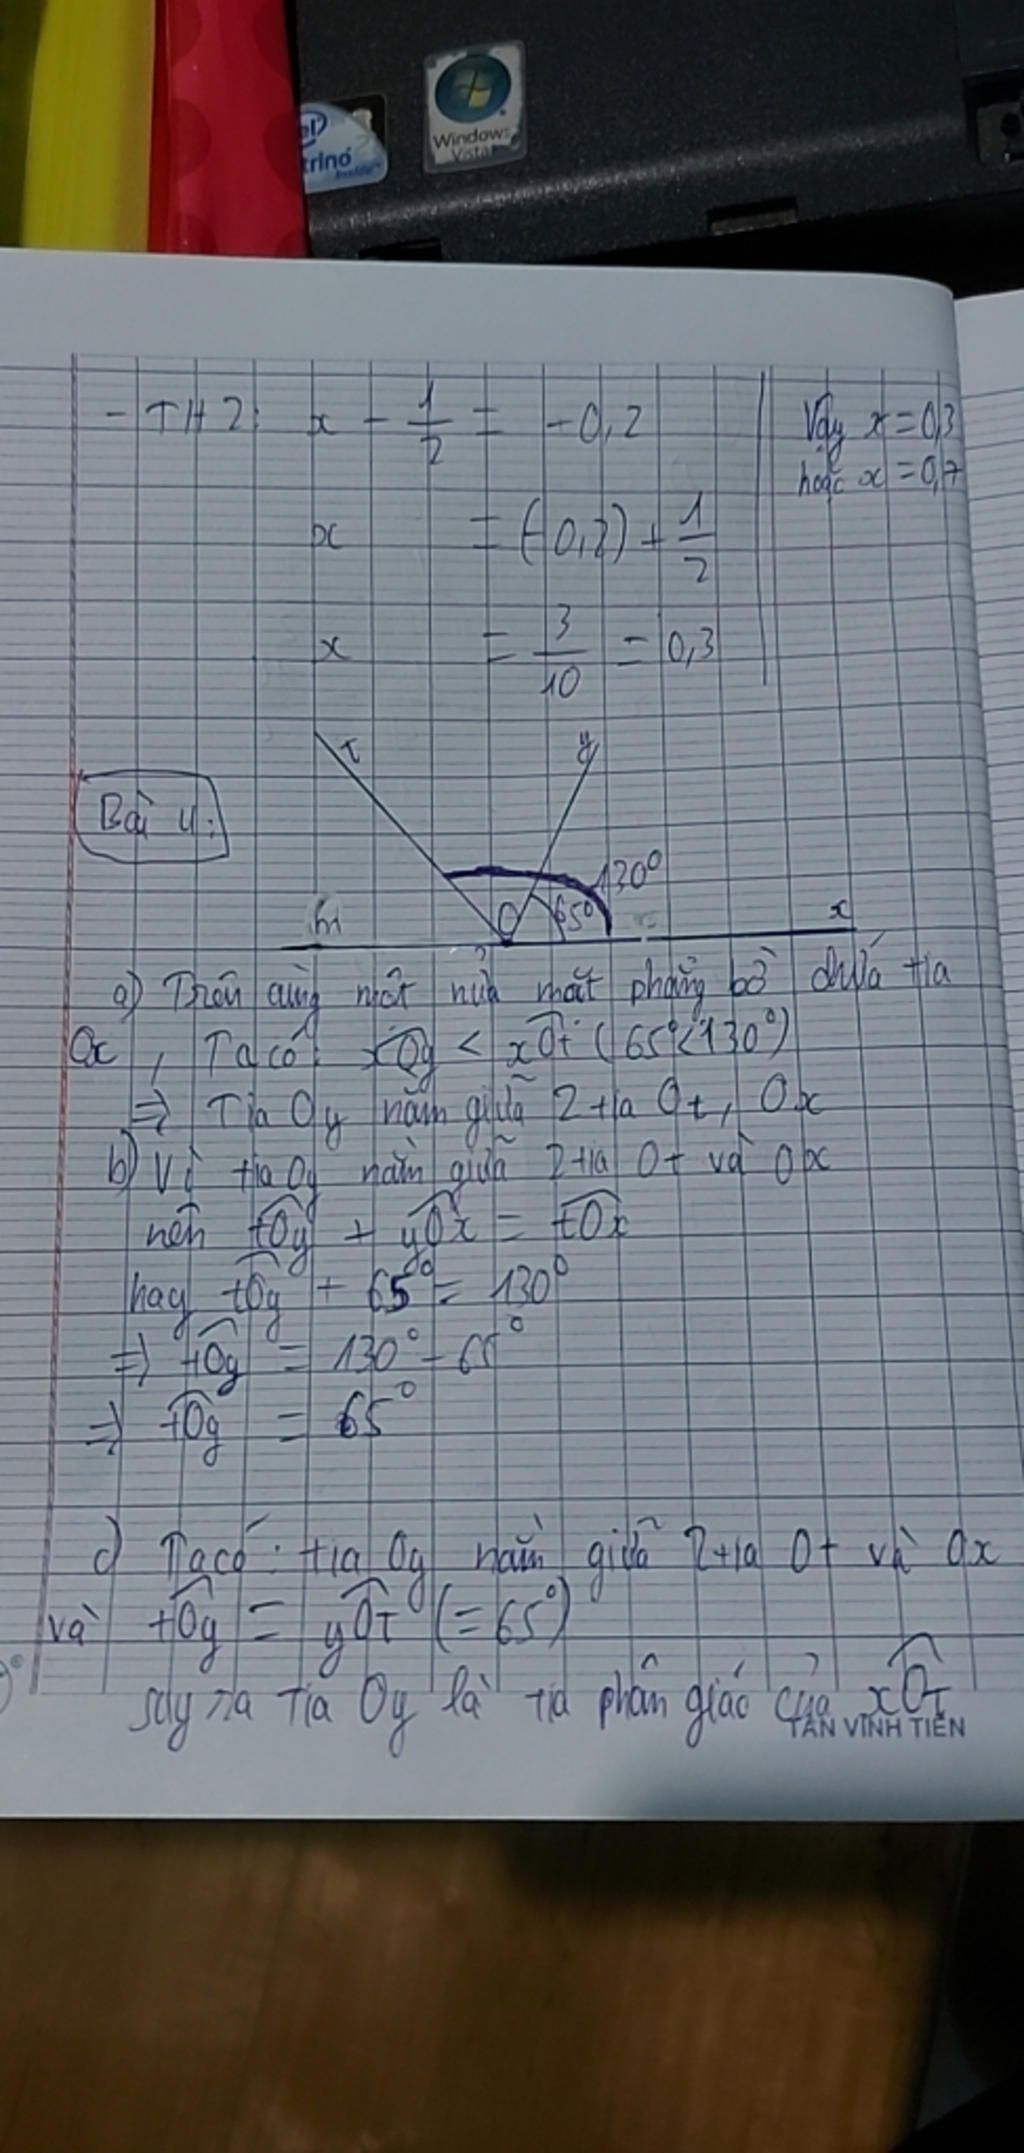 el
trino
inside
Windows
Vista
- TH2: x - 1/2 = -0,2
x = (-0,2) + 1/2
x = 3/10 = 0,3
Vậy x = 0,3
hoặc x = 0,7
Bài 4:
t
y
130°
65°
m
O
x
a) Trên cùng một nửa mặt phẳng bờ chứa tia
Ox, Ta có: xOy < xOt (65°<130°)
=> Tia Oy nằm giữa 2 tia Ot, Ox
b) Vì tia Oy nằm giữa 2 tia Ot và Ox
nên tOy + yOx = tOx
hay tOy + 65° = 130°
=> tOy = 130° - 65°
=> tOy = 65°
c) Ta có: tia Oy nằm giữa 2 tia Ot và Ox
và tOy = yOt (= 65°)
suy ra Tia Oy là tia phân giác của xOt
TÂN VĨNH TIẾN